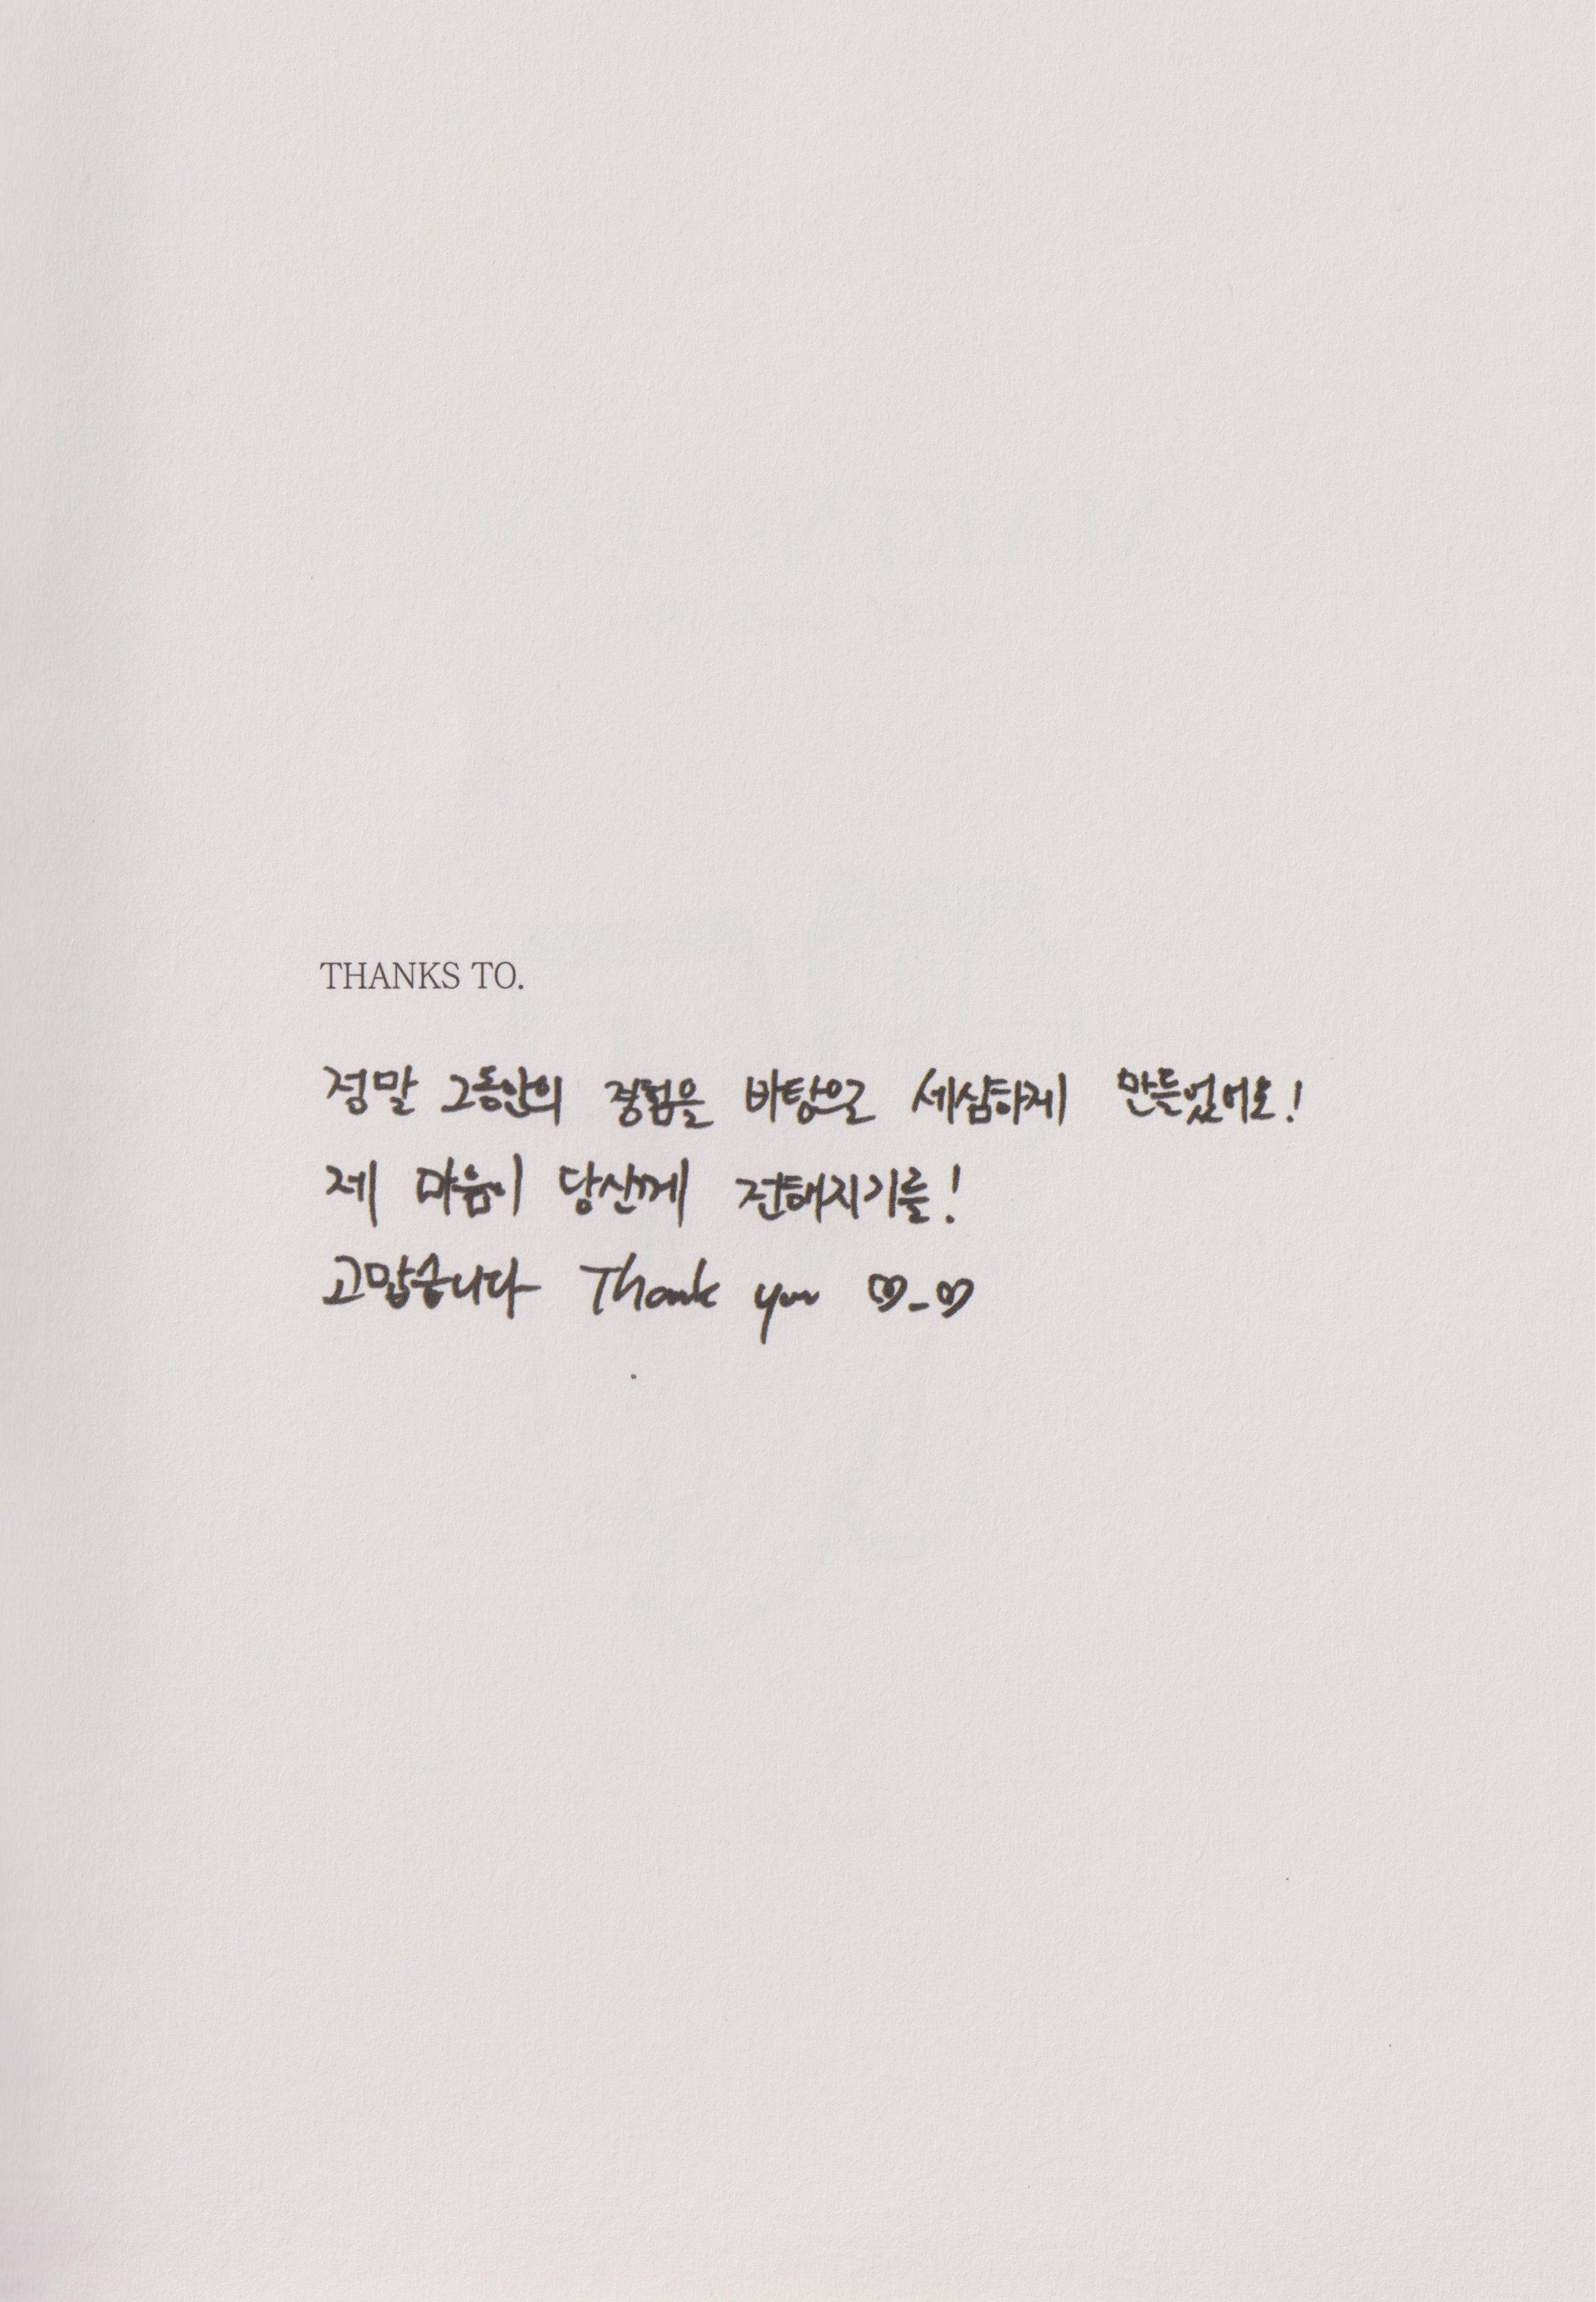 THANKS TO.
정말 그동안의 경험을 바탕으로 세심하게 만들었어요!
제 마음이 당신께 전해지기를!
고맙습니다 Thank you ♡_♡